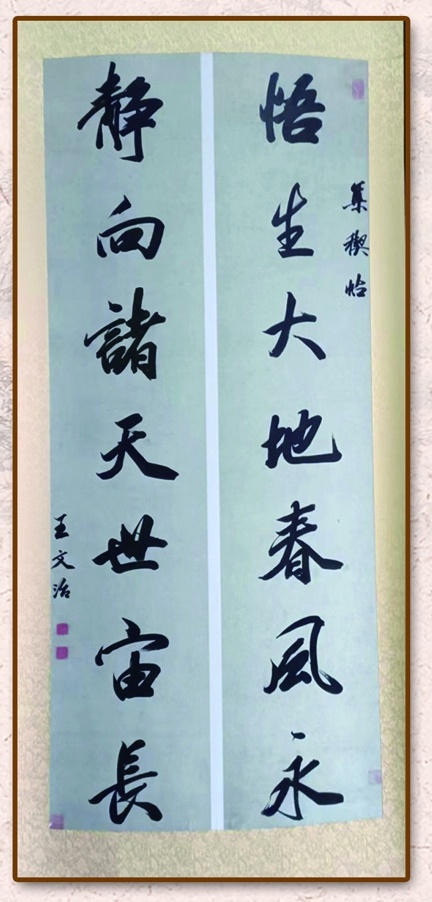 悟生大地春風永
集禊帖
靜向諸天世宙長
王文治